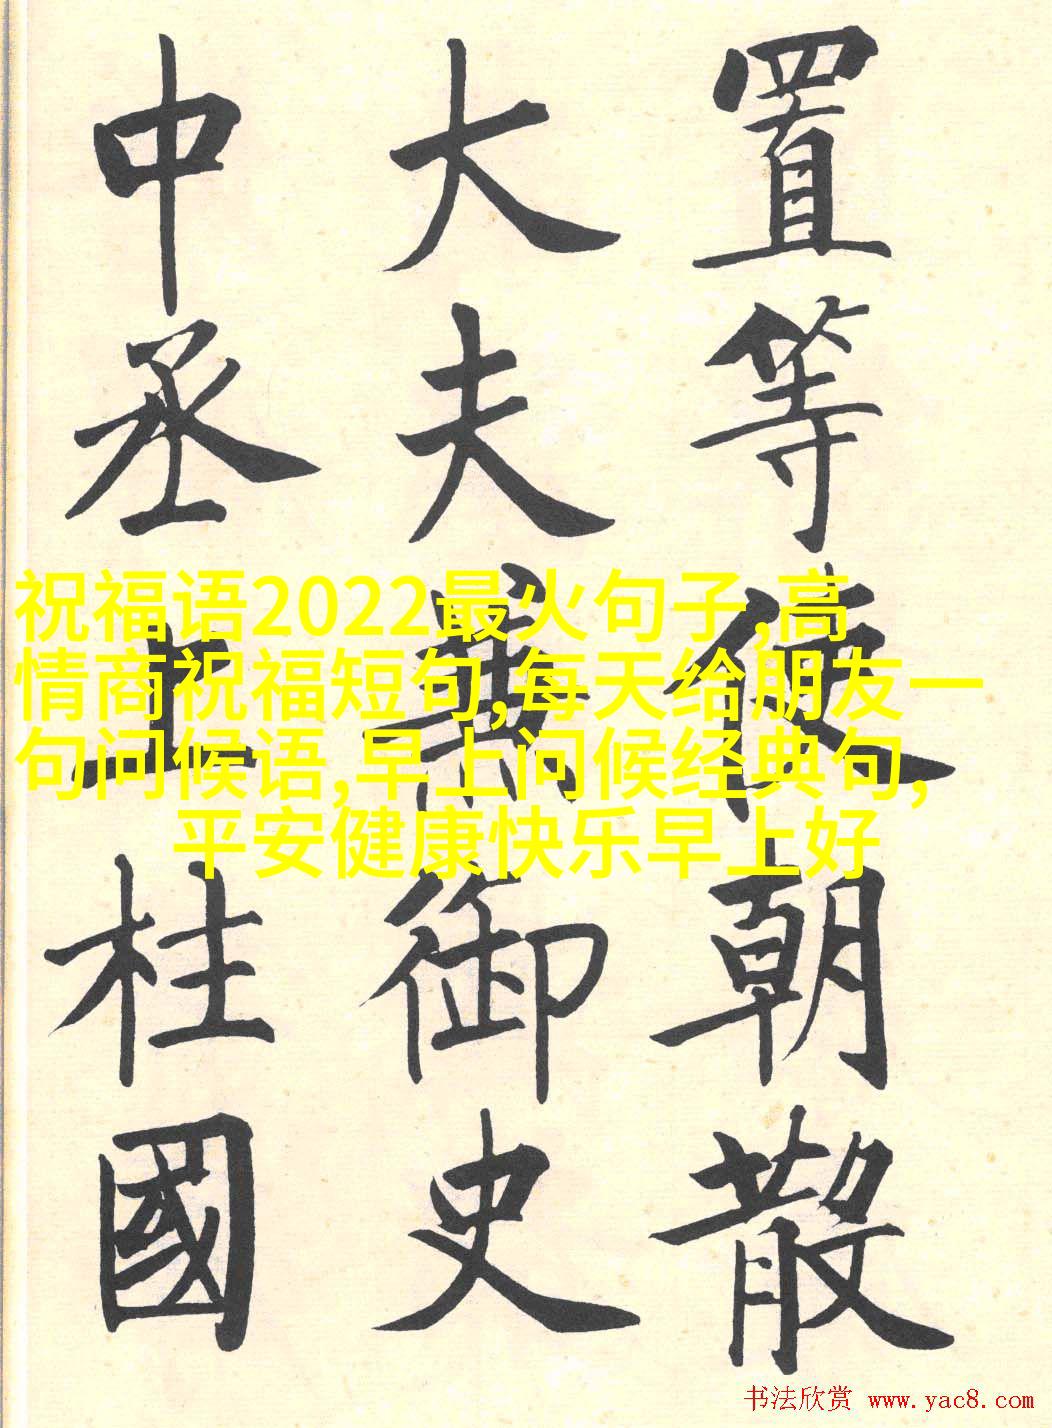 置等使朝散
大夫兼御史
中丞上柱國
祝福语2022最火句子,高
情商祝福短句,每天给朋友一
句问候语,早上问候经典句,
平安健康快乐早上好
书法欣赏 www.yac8.com